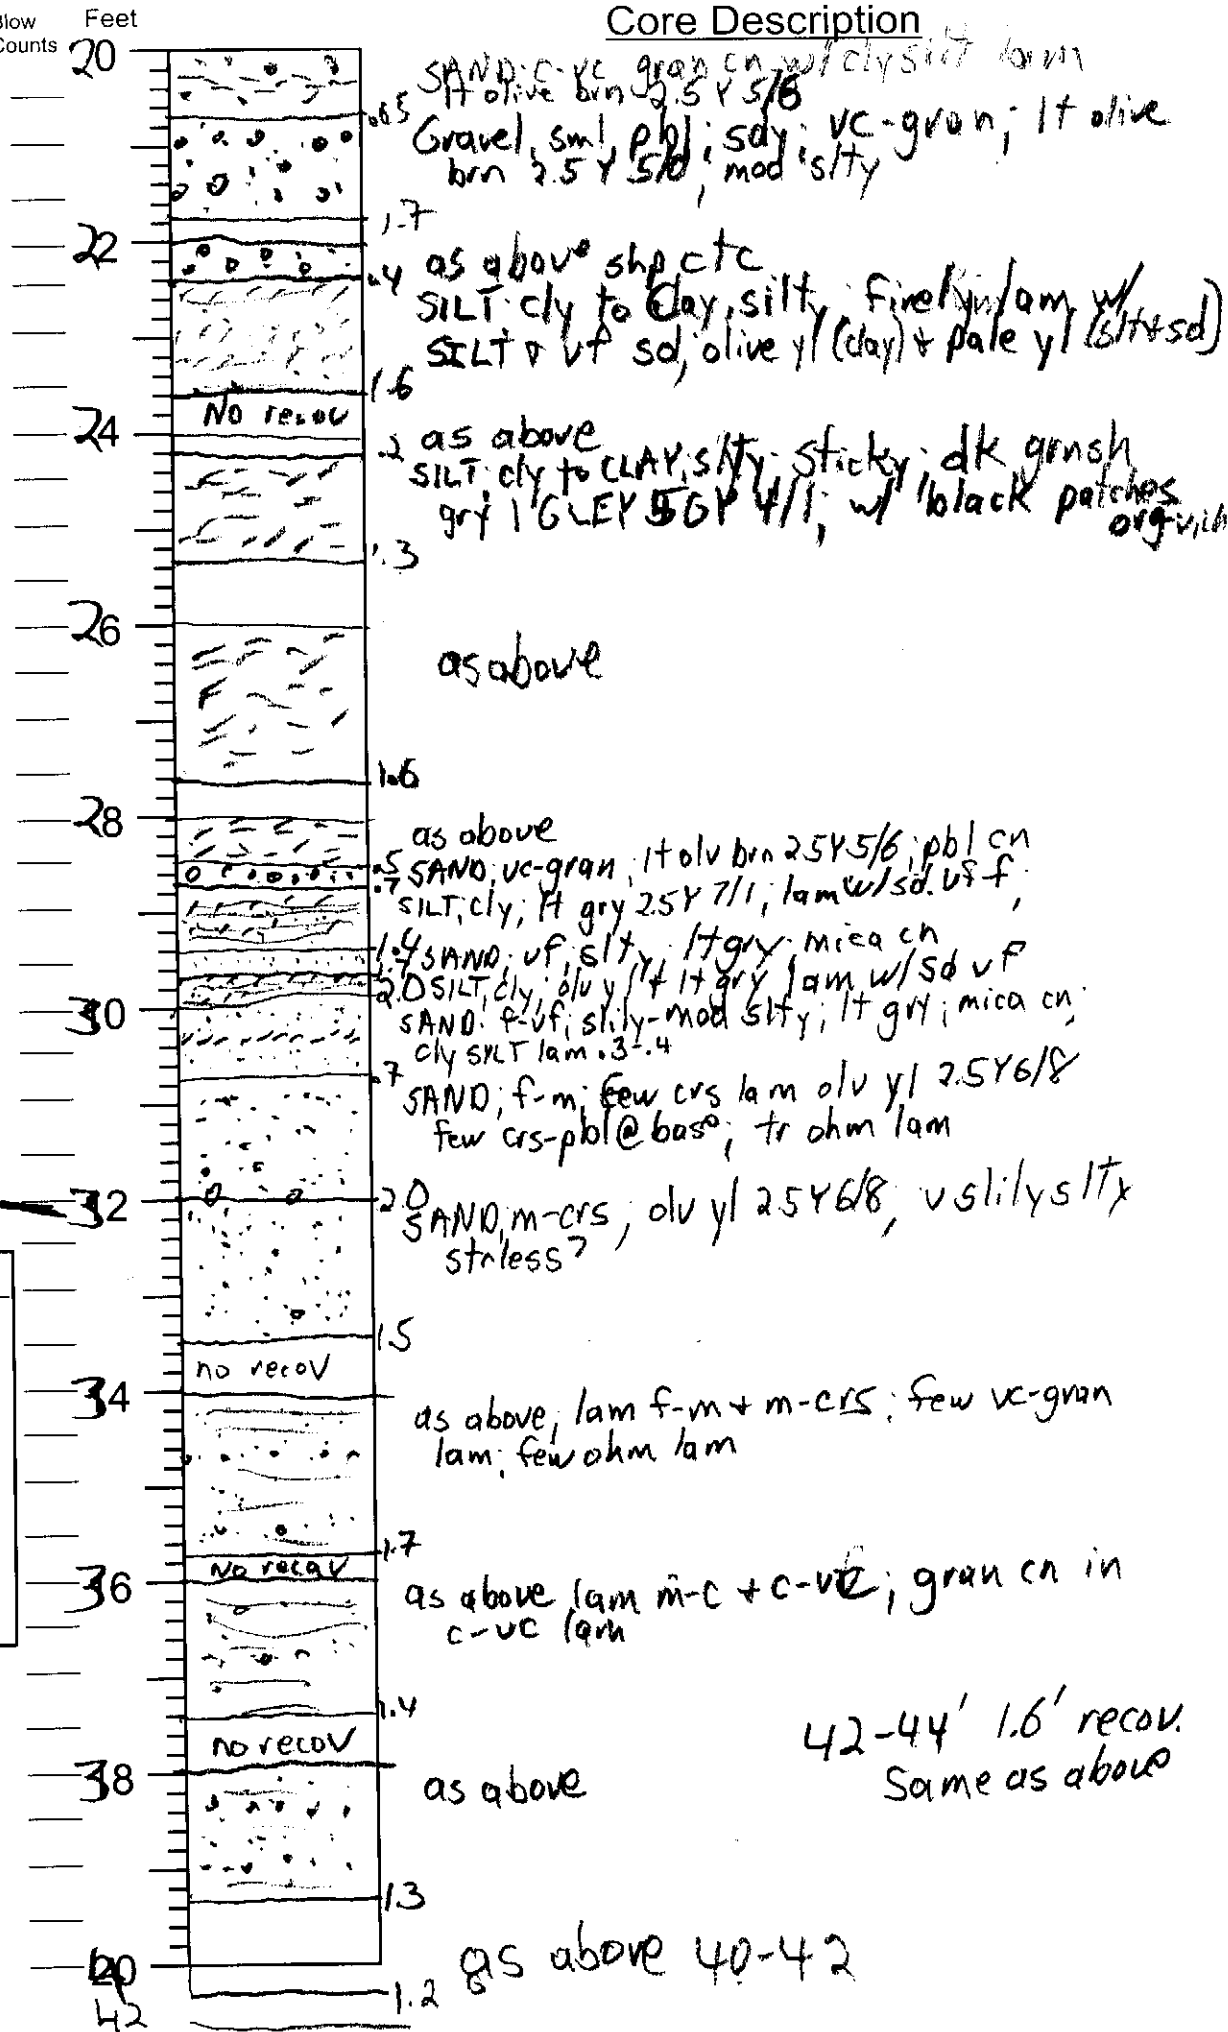 Blow
Counts
Feet
Core Description
20
SAND: c-vc gran cn w/clysilt lam
lt olive brn 2.5 Y 5/6
.65
Gravel, sml, pbl; sdy; vc-gran; lt olive
brn 2.5 Y 5/6; mod slty
1.7
22
as above shp ctc
.4
SILT: cly to Clay, silty; finely lam w/
SILT & vf sd; olive yl (clay) + pale yl (slt+sd)
1.6
No recov
24
.2 as above
SILT: cly to CLAY; slty; sticky; dk grnsh
gry 1 GLEY 5GY 4/1; w/ black patches
org-rich
1.3
26
as above
1.6
28
as above
.5 SAND; vc-gran; lt olv brn 2.5Y 5/6; pbl cn
.7 SILT; cly; lt gry 2.5Y 7/1; lam w/sd. vf f;
1.4 SAND; vf; slty; lt gry; mica cn
1.7
2.0 SILT, cly; olv yl + lt gry lam w/ sd vf
30
SAND: f-vf; slily-mod slty; lt gry; mica cn;
cly SILT lam .3-.4
.7
SAND; f-m; few crs lam olv yl 2.5Y6/8
few crs-pbl@base; tr ohm lam
32
2.0
SAND, m-crs; olv yl 2.5Y6/8; v slily slty
strless?
1.5
no recov
34
as above; lam f-m + m-crs; few vc-gran
lam; few ohm lam
1.7
No recov
36
as above lam m-c + c-vc; gran cn in
c-vc lam
1.4
no recov
42-44' 1.6' recov.
Same as above
38
as above
1.3
40
as above 40-42
1.2
42